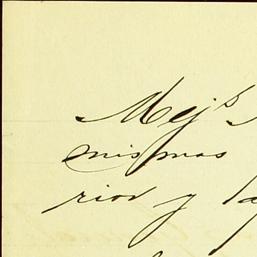 Mejs
mismas
rior y la